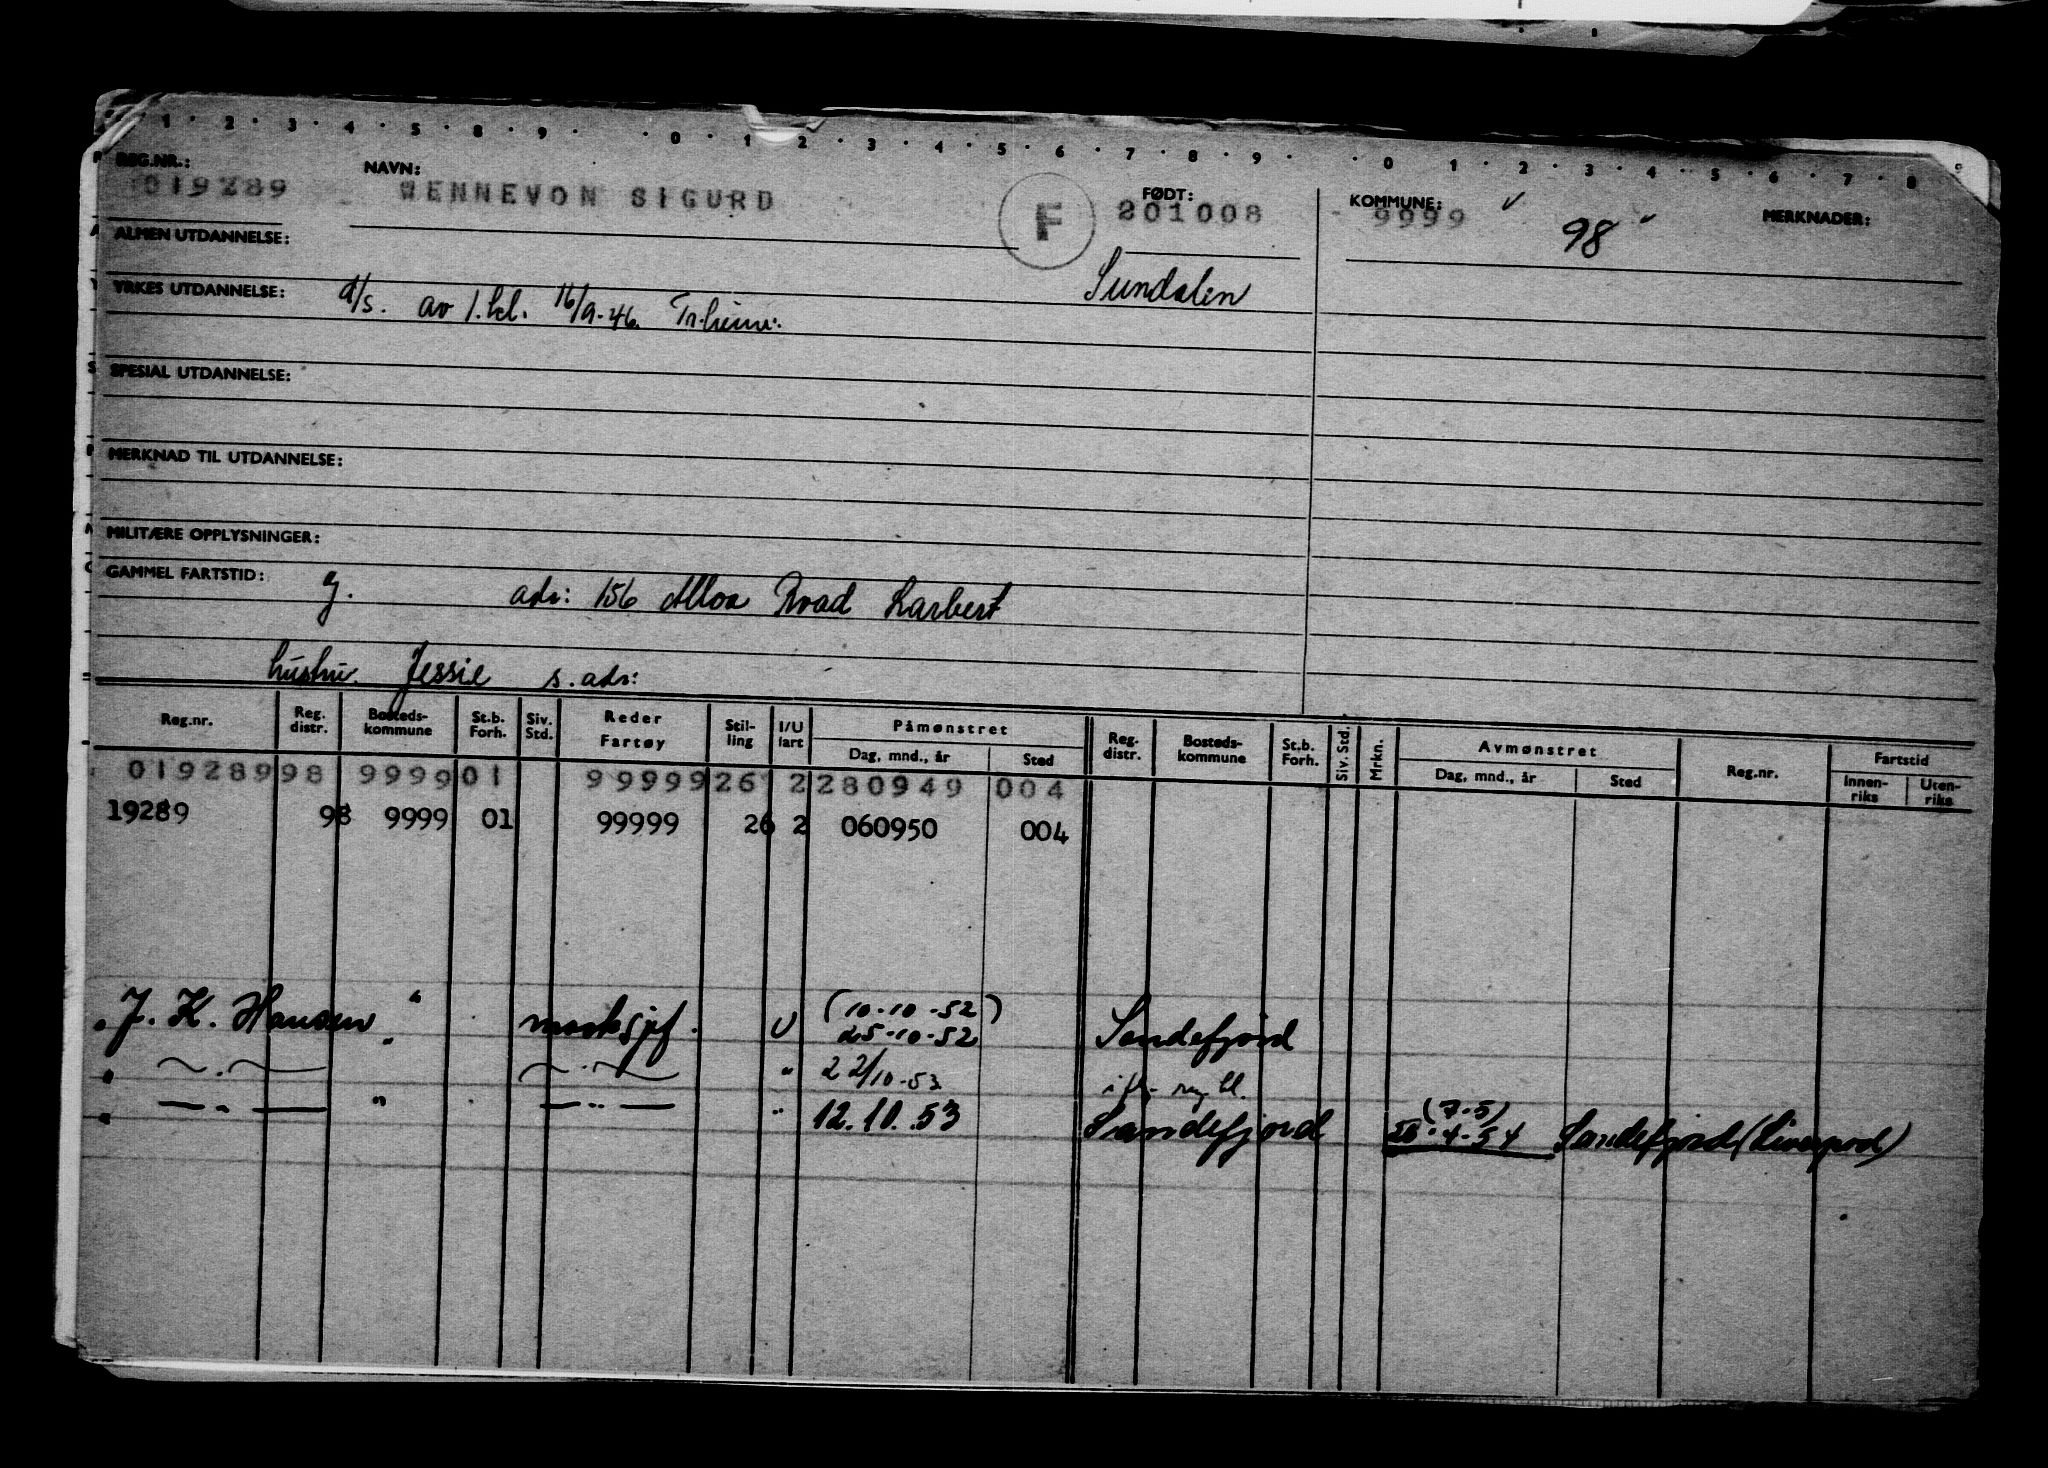 1 · 2 · 3 · 4 · 5 · 8 · 9 · · 0 · 1 2 · 3 · 4 · 5 · 6 · 7 · 8 · 9 · · 0 · 1 · 2 · 3 · 4 · 5 · 6 · 7 · 8 9
REG.NR.: NAVN: FØDT: KOMMUNE: MERKNADER:
019289 WENNEVON SIGURD F 201008 9999 98
ALMEN UTDANNELSE:
Sundalen
YRKES UTDANNELSE: d/s. av 1.kl. 16/9-46. Tr.heim.
SPESIAL UTDANNELSE:
MERKNAD TIL UTDANNELSE:
MILITÆRE OPPLYSNINGER:
GAMMEL FARTSTID: g. adr: 156 Alloa Road Larbert
hustru. Jessie s. adr:
Reg.nr. Reg. distr. Bosteds-kommune St.b. Forh. Siv. Std. Reder Fartøy Stil-ling I/U fart Påmønstret Dag, mnd., år Sted Reg. distr. Bosteds-kommune St.b. Forh. Siv. Std. Mrkn. Avmønstret Dag, mnd., år Sted Reg.nr. Fartstid Innen-riks Uten-riks
019289 98 9999 01 99999 26 2 280949 004
19289 98 9999 01 99999 26 2 060950 004
(10-10-52)
J. K. Hansen " U 25-10-52 Sandefjord
" 22/10-53
(7-5)
" " 12.10.53 Sandefjord 26-4-54 Sandefjord (Liverpool)